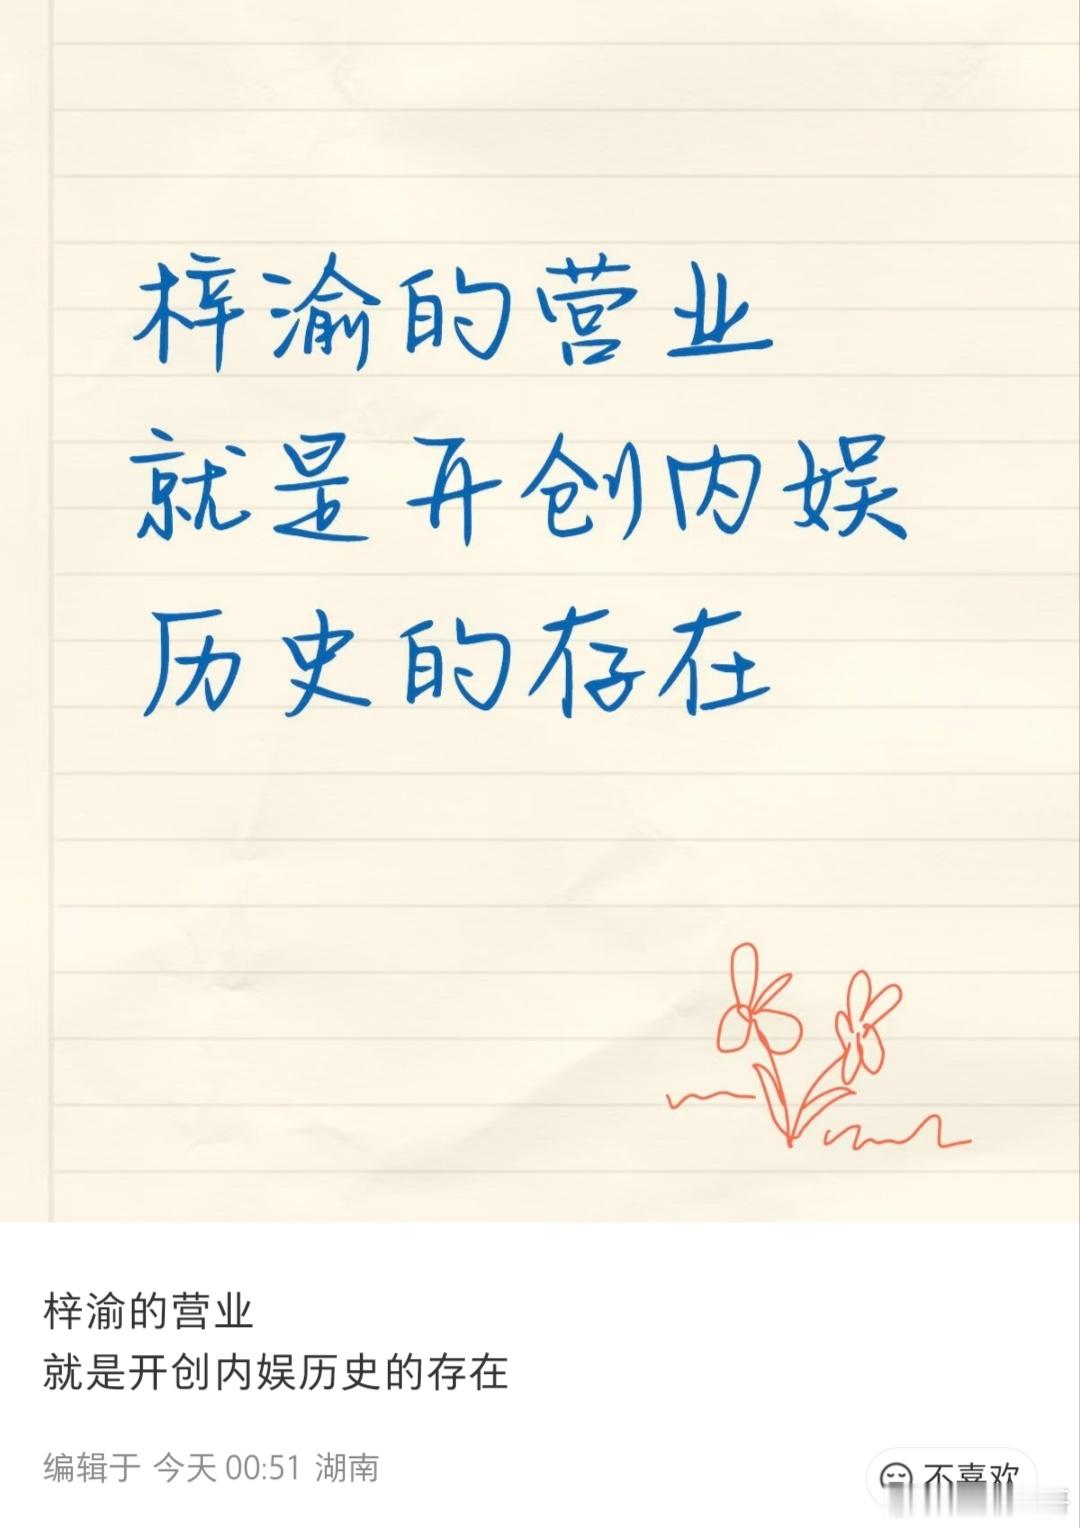 梓渝的营业
就是开创内娱
历史的存在
梓渝的营业
就是开创内娱历史的存在
编辑于 今天 00:51 湖南
不喜欢